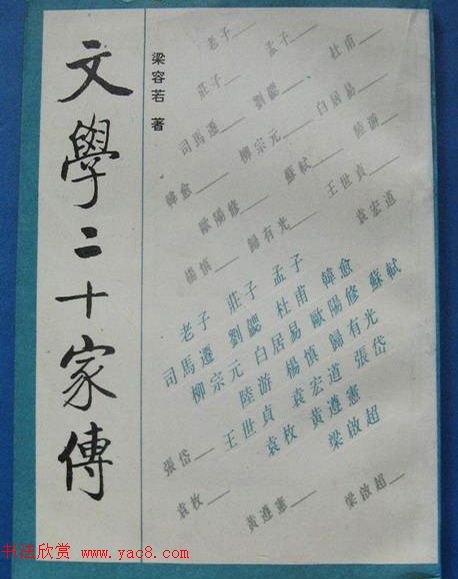 文學二十家傳
梁容若 著
老子__ 孟子__ 杜甫__
莊子__ 劉勰__ 白居易__
司馬遷__ 柳宗元__ 蘇軾__ 陸游__
韓愈__ 歐陽修__ 歸有光__ 王世貞__
楊慎__ 袁宏道
老子 莊子 孟子
司馬遷 劉勰 杜甫 韓愈
柳宗元 白居易 歐陽修 蘇軾
陸游 楊慎 歸有光
王世貞 袁宏道 張岱
袁枚 黃遵憲
梁啟超
張岱__
袁枚__ 黃遵憲__ 梁啟超__
书法欣赏 www.yac8.com